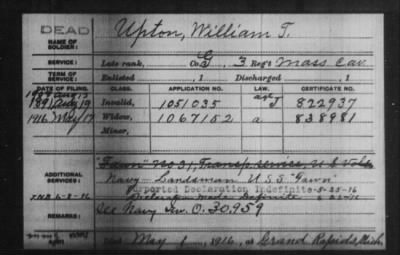 DEAD
NAME OF SOLDIER: Upton, William T.
SERVICE: Late rank, Co. G, 3 Reg't Mass Cav
TERM OF SERVICE: Enlisted , 1 Discharged , 1
DATE OF FILING. CLASS. APPLICATION NO. LAW. CERTIFICATE NO.
1891 Aug 19 Invalid, 1051035 822937
1916 May 17 Widow, 1067152 a 838981
Minor,
ADDITIONAL SERVICES: "Fawn" No 31, Transp service, U S Vols
Navy - Landsman U.S.S. "Fawn"
Purported Declaration Indefinite-5-25-16
Declaration made Definite
REMARKS: See Navy Inv. O. 30,959
Died May 1, 1916, at Grand Rapids, Mich.